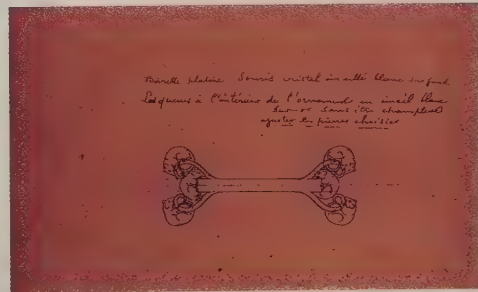 Barrette platine Souris cristal émaillé blanc sur fond
Les queues à l'intérieur de l'ornement en émail blanc
sur or sans être champlevé
ajuster les pierres choisies